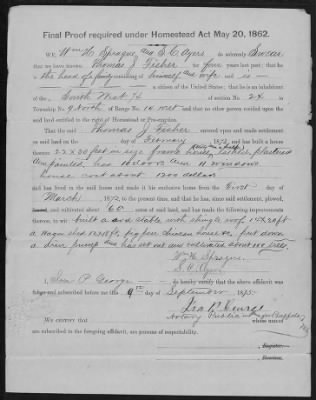 Final Proof required under Homestead Act May 20, 1862.
WE, Wm H. Sprague, and S. C. Ayers do solemnly Swear
that we have known Thomas J. Fisher for four years last past; that he
is the head of a family consisting of himself and wife and is
a citizen of the United States; that he is an inhabitant
of the South West ¼ of section No. 24 in
Township No. 9 North of Range No. 14 West and that no other person resided upon the
said land entitled to the right of Homestead or Pre-emption.
That the said Thomas J. Fisher entered upon and made settlement
on said land on the day of February, 1872, and has built a house
thereon 22 x 30 feet in size frame house, plastered
and painted, has 10 doors and 11 windows
house cost about 1200 dollars
and has lived in the said house and made it his exclusive home from the first day of
March, 1872, to the present time, and that he has, since said settlement, plowed,
and cultivated about 60 acres of said land, and has made the following improvements
thereon, to wit: built a stable with shingle roof 14x20 ft
a wagon shed 12x18 ft, pig pen chicken house &c, put down
a drive pump and has set out and cultivated about trees.
Wm H. Sprague
S. C. Ayers
I, P. George do hereby certify that the above affidavit was
subscribed before me this 4th day of September 1875.
P. George
Notary Public
WE CERTIFY that whose names are
subscribed to the foregoing affidavit, are persons of respectability.
Register.
Receiver.